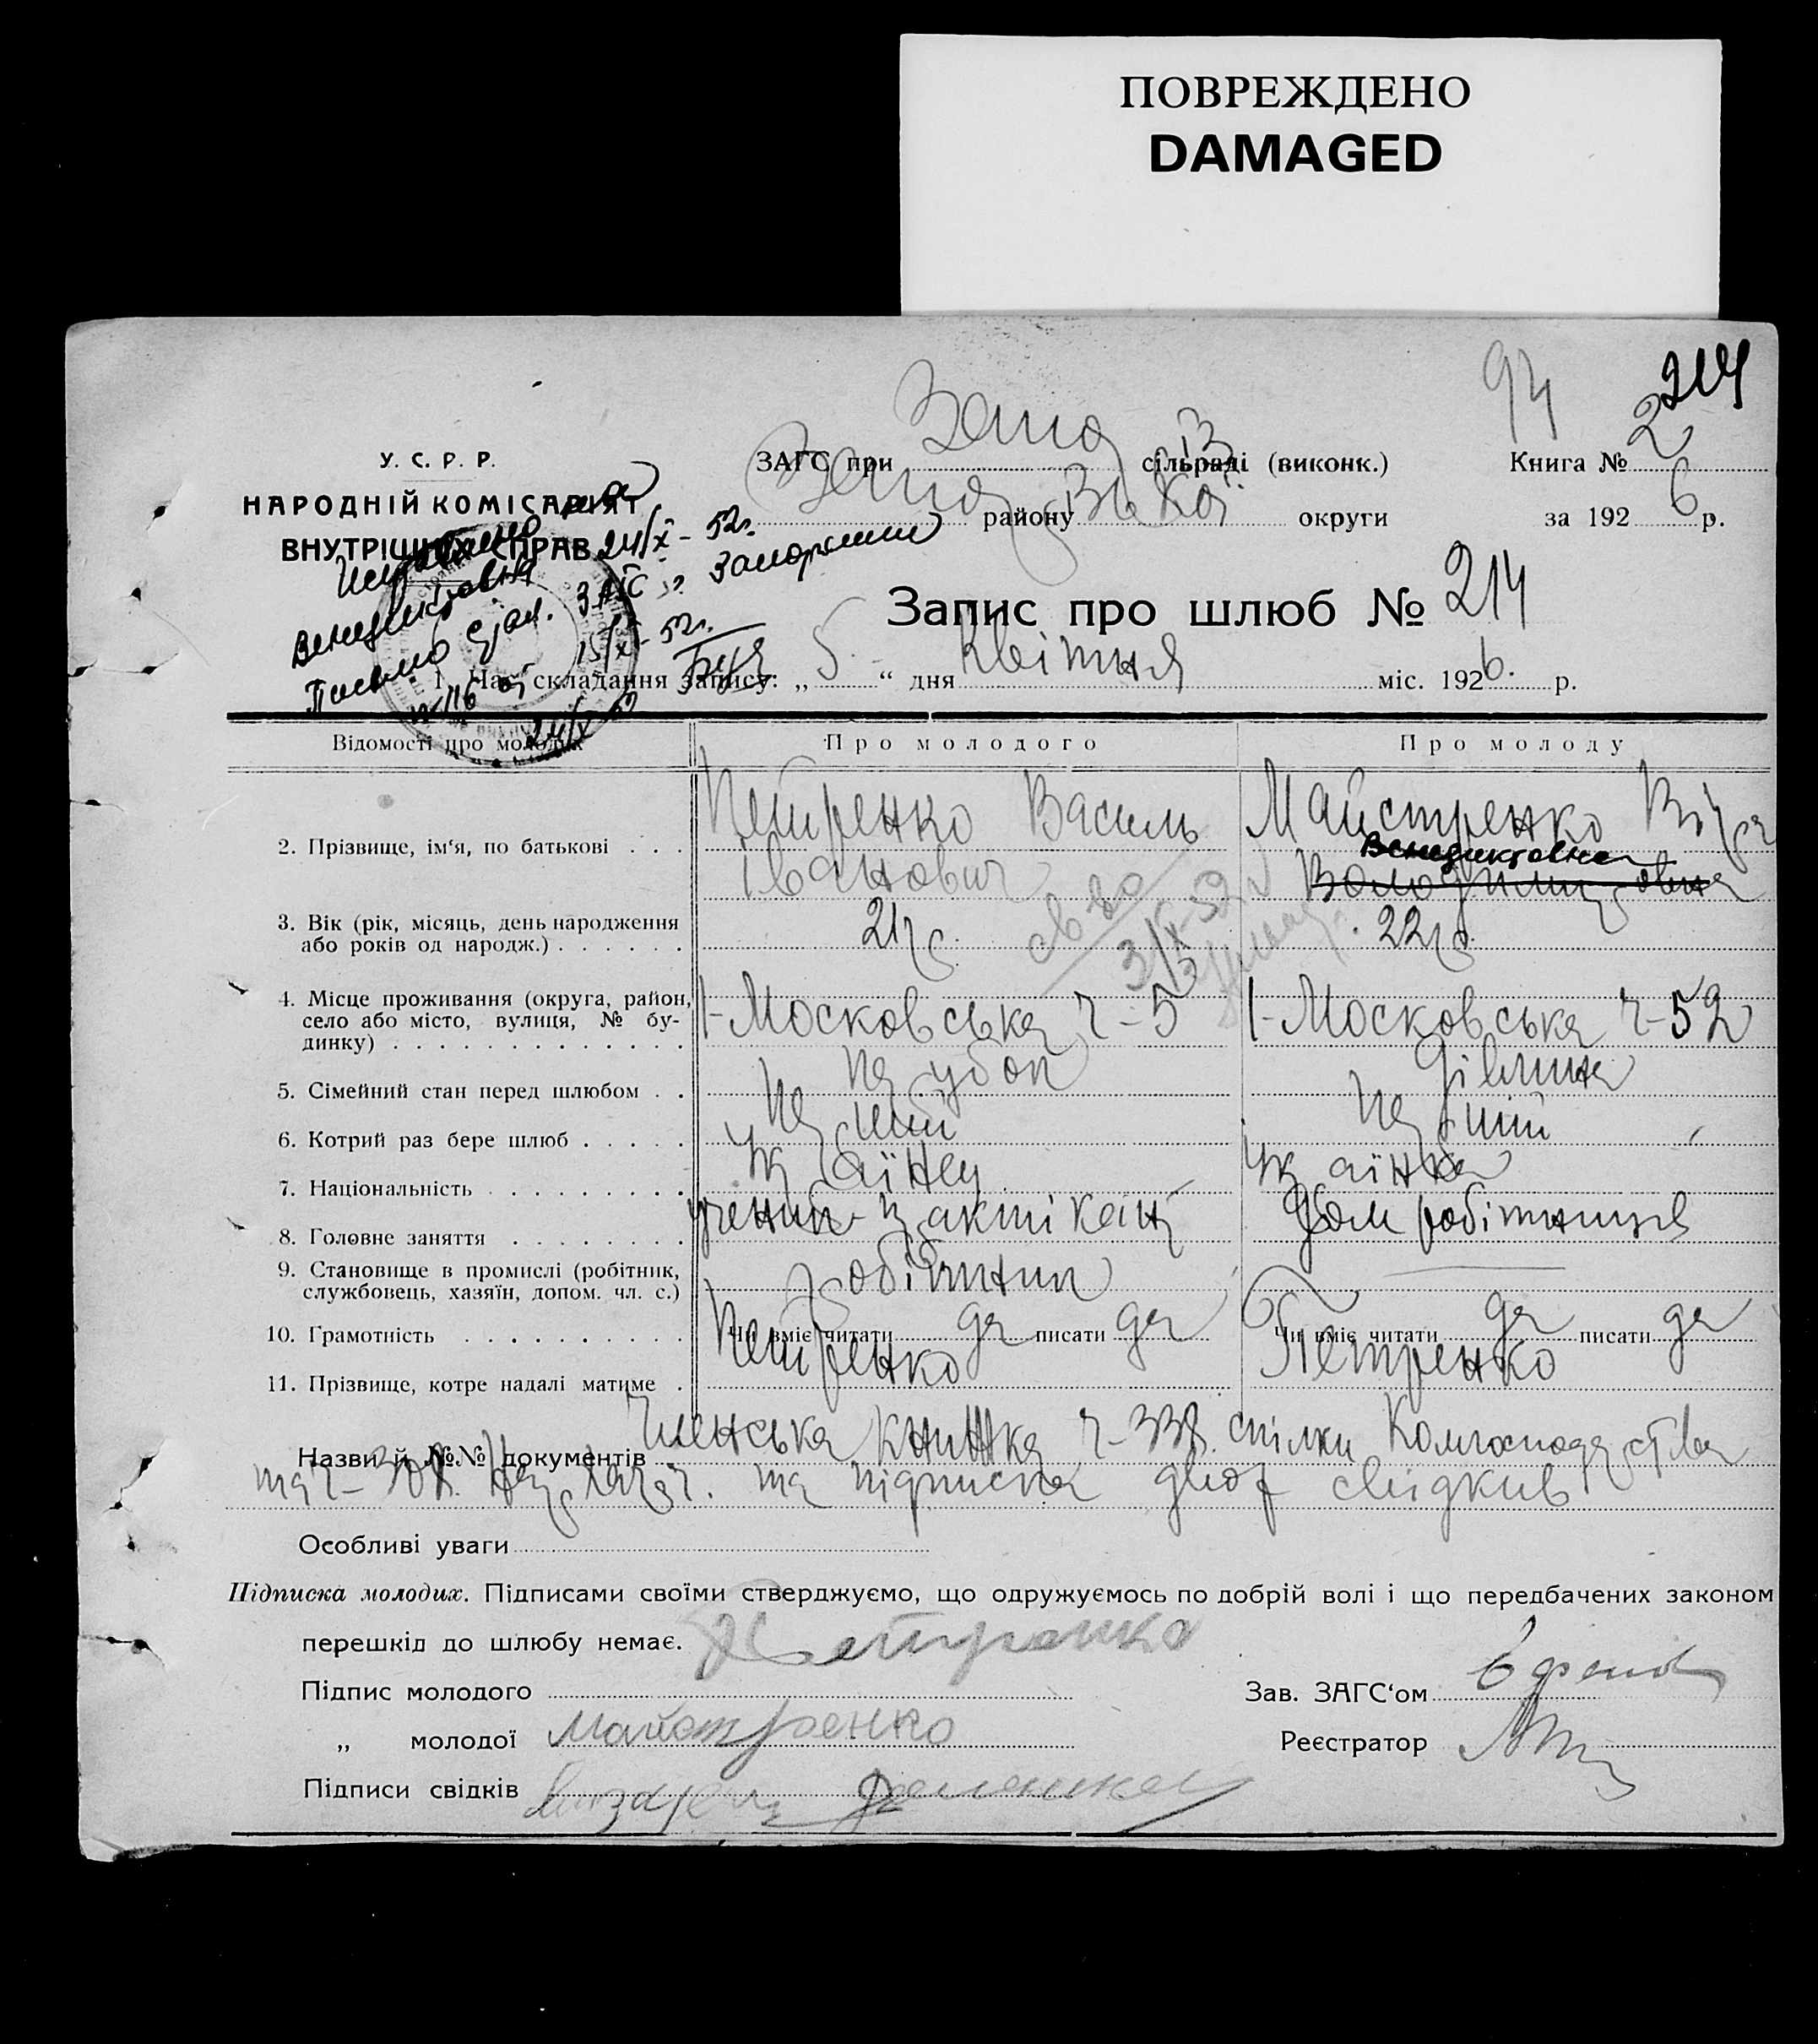 ПОВРЕЖДЕНО
DAMAGED
94
214
У. С. Р. Р.
НАРОДНІЙ КОМІСАРІЯТ
ВНУТРІШНІХ СПРАВ
ЗАГС при Запо сільраді (виконк.)
Книга № 2
району округи
за 1926 р.
Исправлено на
Венедиктовна 24/X - 52г.
ЗАГС г. Запорожья
15/X - 52г.
№ 116 от
24/X 52
Запис про шлюб № 214
1. Час складання запису: „ 5 “ дня Квітня міс. 1926. р.
Відомості про молодих
Про молодого
Про молоду
2. Прізвище, ім‘я, по батькові . . .
Петренко Василь
Іванович
Майстренко Віра
Венедиктовна
Володимировна
3. Вік (рік, місяць, день народження
або років од народж.) . . . . . .
21 р.
22 р.
св во
3/X-52
4. Місце проживання (округа, район,
село або місто, вулиця, № бу-
динку) . . . . . . . . . . . . .
1-Московська ч-5
1-Московська ч-52
5. Сімейний стан перед шлюбом . .
парубок
дівчина
6. Котрий раз бере шлюб . . . . .
перший
перший
7. Національність . . . . . . . . .
Українец
Українка
8. Головне заняття . . . . . . . .
ученик-практікант
Дом робітниця
9. Становище в промислі (робітник,
службовець, хазяїн, допом. чл. с.)
робітник
10. Грамотність . . . . . . . . . .
Чи вміє читати да писати да
Чи вміє читати да писати да
11. Прізвище, котре надалі матиме .
Петренко
Петренко
Назви й №№ документів Членська книжка ч-338 спілки Комгосподарства
та ч- та підписка двох свідків
Особливі уваги
Підписка молодих. Підписами своїми стверджуємо, що одружуємось по добрій волі і що передбачених законом
перешкід до шлюбу немає.
Підпис молодого Петренко
Зав. ЗАГС‘ом
„ молодої Майстренко
Реєстратор
Підписи свідків